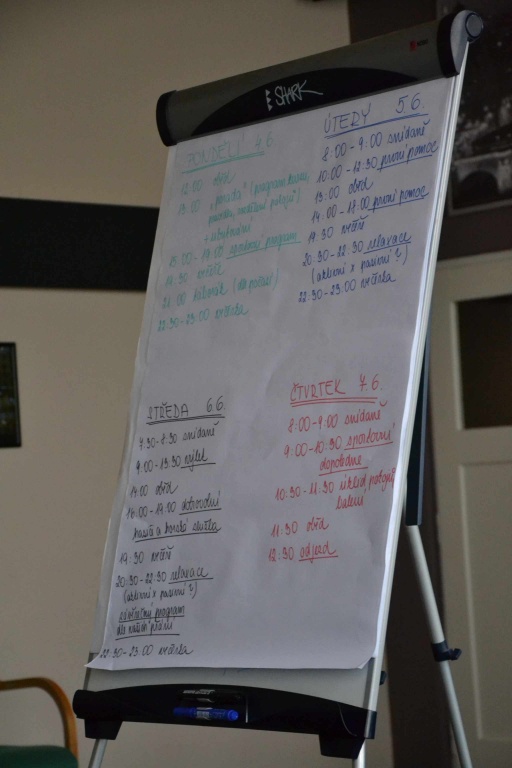 SHARK
PONDĚLÍ 4.6.
12:00 oběd
13:00 "porada" (program kurzu,
pravidla, rozdělení pokojů)
+ ubytování
15:00 - 19:00 společný program
19:30 večeře
21:00 táborák (dle počasí)
22:30-23:00 večerka
ÚTERÝ 5.6.
8:00 - 9:00 snídaně
10:00 - 12:30 první pomoc
13:00 oběd
14:00 - 18:00 první pomoc
19:30 večeře
20:30 - 22:30 relaxace
(aktivní x pasivní ?)
22:30 - 23:00 večerka
STŘEDA 6.6.
7:30 - 8:30 snídaně
9:00 - 13:30 výlet
14:00 oběd
16:00 - 19:00 dobrovolní
hasiči a horská služba
19:30 večeře
20:30 - 22:30 relaxace
(aktivní x pasivní ?)
závěrečný program
dle vašich přání
22:30 - 23:00 večerka
ČTVRTEK 7.6.
8:00 - 9:00 snídaně
9:00 - 10:30 sportovní
dopoledne
10:30 - 11:30 úklid pokojů
balení
11:30 oběd
12:30 odjezd